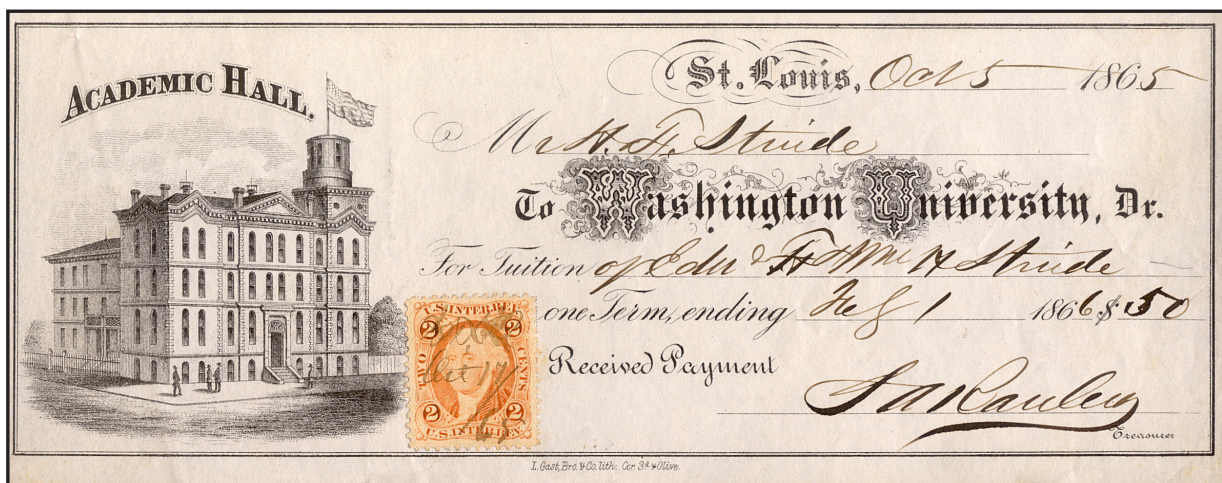 ACADEMIC HALL.
St. Louis, Oct 5 1865
Mr H. F. Stride
To Washington University, Dr.
For Tuition of Edw & Wm H Stride
one Term, ending Feb 1 1866 $150
Received Payment
Treasurer
U.S. INTER. REV.
2 2
TWO CENTS
Oct 17
65
2 2
U.S. INTER. REV.
L. Gast, Bro. & Co. lith. Cor. 3d & Olive.